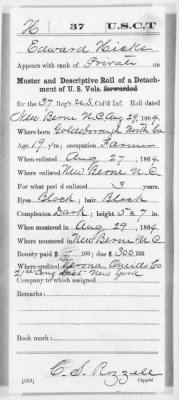 H 37 U.S.C.T
Edward Hicks
Appears with rank of Private on
Muster and Descriptive Roll of a Detach-
ment of U. S. Vols. forwarded
for the 37 Reg't U.S. Col'd Inf. Roll dated
New Berne N.C Aug 29, 1864.
Where born Goldsborough North Ca
Age 19 y'rs; occupation Farmer
When enlisted Aug 27, 1864.
Where enlisted New Berne N.C
For what period enlisted 3 years.
Eyes Black; hair Black
Complexion Dark; height 5 ft. 7 in.
When mustered in Aug 29, 1864.
Where mustered in New Berne N.C
Bounty paid $ 100; due $ 300 100
Where credited Verona, Oneida Co
21st Cong Dist. New York
Company to which assigned
Remarks:
Book mark:
C. S. Rozzell
Copyist.